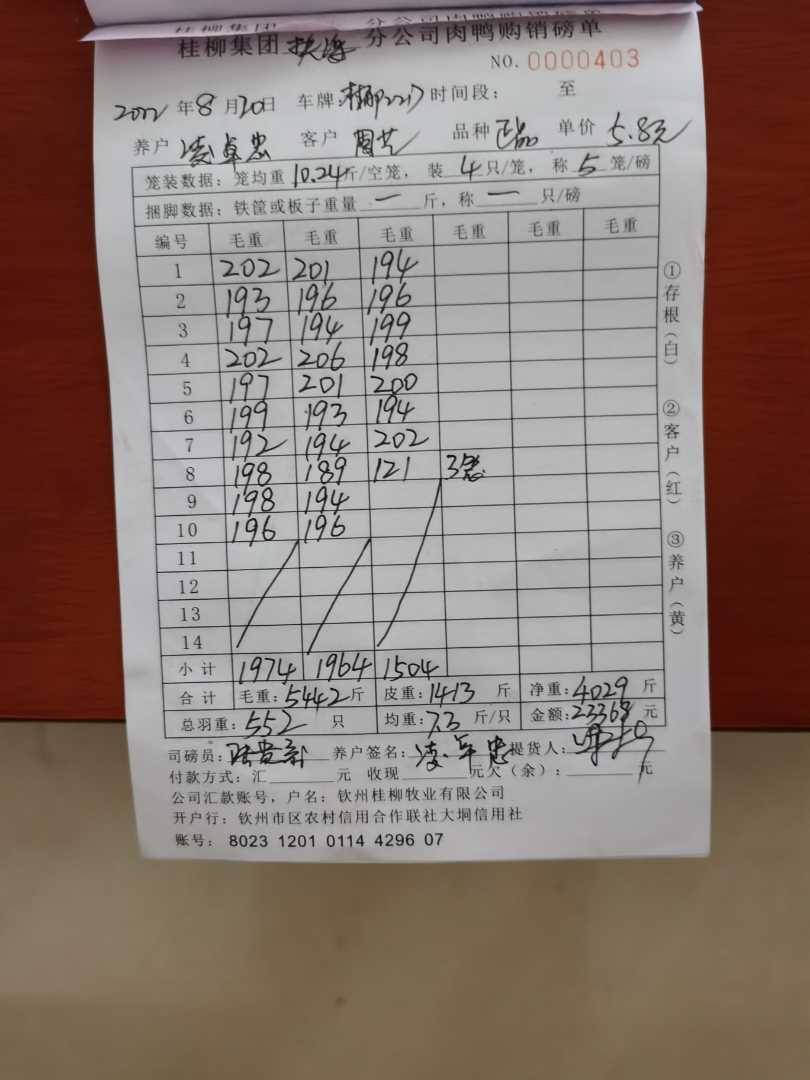 桂柳集团 扶绥 分公司肉鸭购销磅单
NO. 0000403
2022 年 8 月 20 日 车牌: 桂柳2217 时间段: 至
养户 凌卓忠 客户 周艺 品种 正品 单价 5.8元
笼装数据: 笼均重 10.24 斤/空笼, 装 4 只/笼, 称 5 笼/磅
捆脚数据: 铁筐或板子重量 一 斤, 称 一 只/磅
编号 毛重 毛重 毛重 毛重 毛重 毛重
1 202 201 194
2 193 196 196
3 197 194 199
4 202 206 198
5 197 201 200
6 199 193 194
7 192 194 202
8 198 189 121 3笼
9 198 194
10 196 196
11
12
13
14
小计 1974 1964 1504
合计 毛重: 5442 斤 皮重: 1413 斤 净重: 4029 斤
总羽重: 552 只 均重: 7.3 斤/只 金额: 23368 元
司磅员: 养户签名: 凌卓忠 提货人:
付款方式: 汇 元 收现 元欠(余): 元
公司汇款账号, 户名: 钦州桂柳牧业有限公司
开户行: 钦州市区农村信用合作联社大垌信用社
账号: 8023 1201 0114 4296 07
①存根(白)
②客户(红)
③养户(黄)